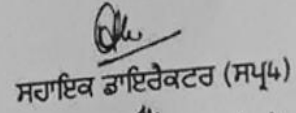 ਸਹਾਇਕ ਡਾਇਰੈਕਟਰ (ਸਪ੍ਰ੪)